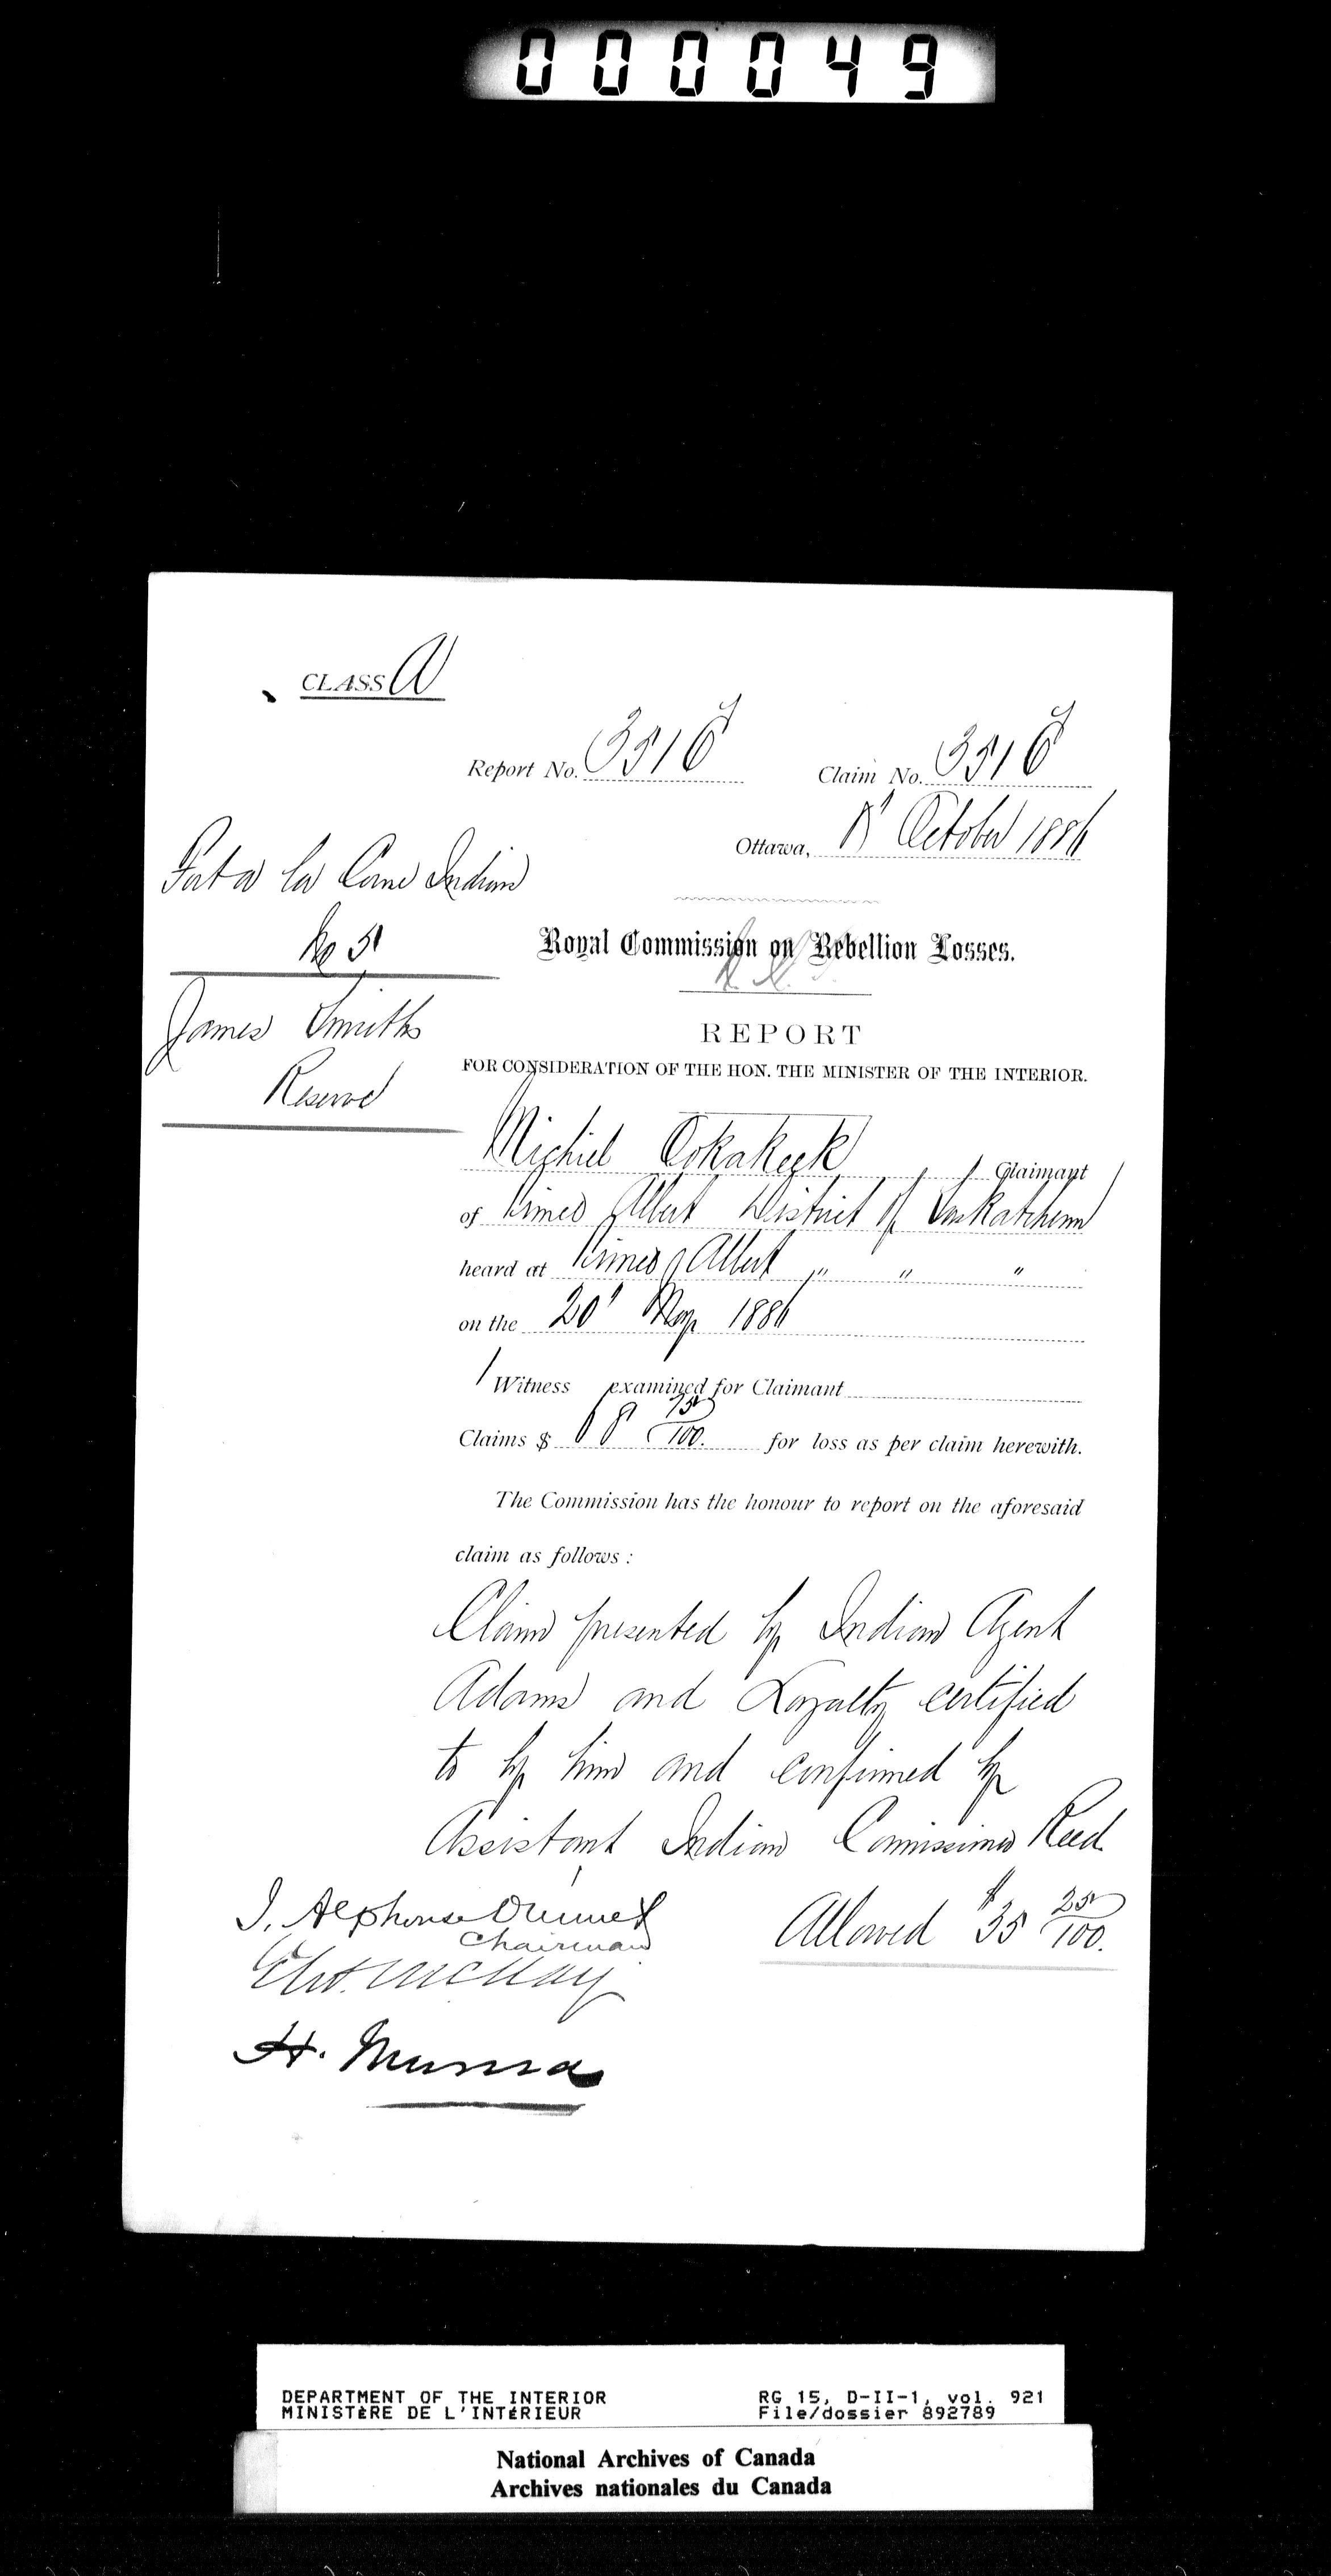 000049
CLASS A
Report No. 3516 Claim No. 3516
Ottawa, October 1886
Fort a la Corne Indian
No 5
James Smiths
Reserve
Royal Commission on Rebellion Losses.
REPORT
FOR CONSIDERATION OF THE HON. THE MINISTER OF THE INTERIOR.
Michiel Cokakeek, Claimant
of Prince Albert District of Saskatchewan
heard at Prince Albert " " "
on the 20' May 1886
1 Witness examined for Claimant
Claims $ 68 75/100. for loss as per claim herewith.
The Commission has the honour to report on the aforesaid
claim as follows :
Claim presented by Indian Agent
Adams and Loyalty certified
to by him and confirmed by
Assistant Indian Commissioner Reed
Allowed $35 25/100.
J. Alphonse Ouimet
Chairman
McKay
H. Muma
DEPARTMENT OF THE INTERIOR RG 15, D-II-1, vol. 921
MINISTÈRE DE L'INTÉRIEUR File/dossier 892789
National Archives of Canada
Archives nationales du Canada